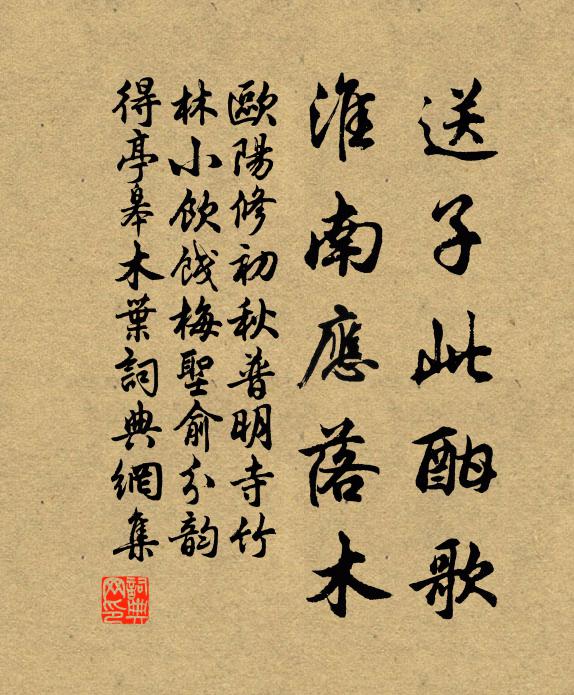 送子此酣歌
淮南應落木
歐陽修初秋普明寺竹
林小飲餞梅聖俞分韵
得亭皋木葉詞典網集
詞典网印